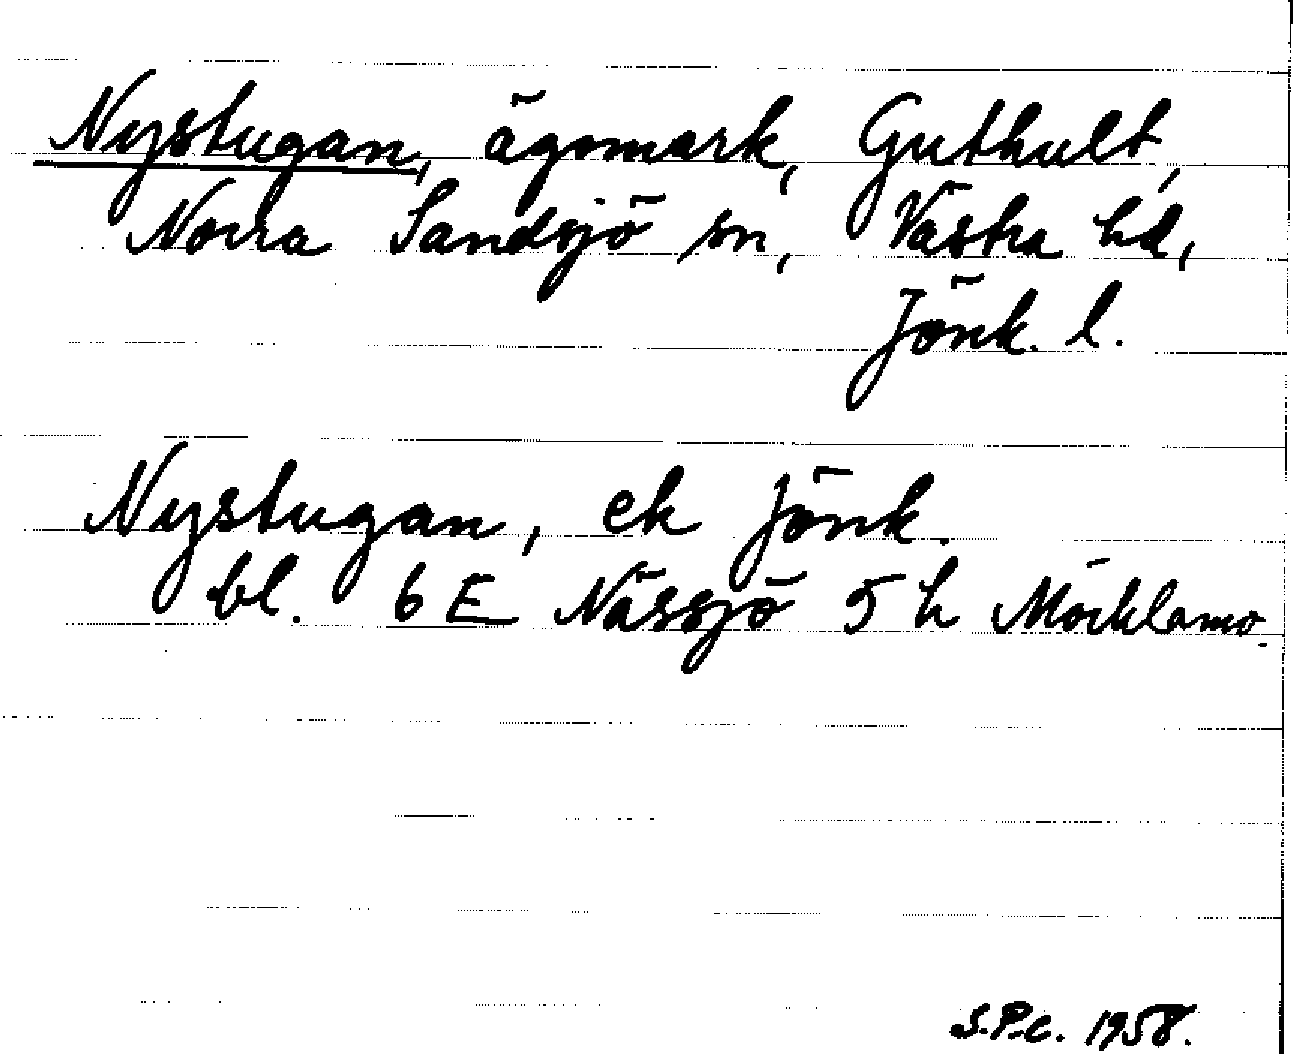 Nystugan, ägomark, Guthult,
Norra Sandsjö sn, Västra hd,
Jönk. l.
Nystugan, ek Jönk.
bl. 6 E Nässjö 5 h Möcklamo.
S.P.C. 1958.